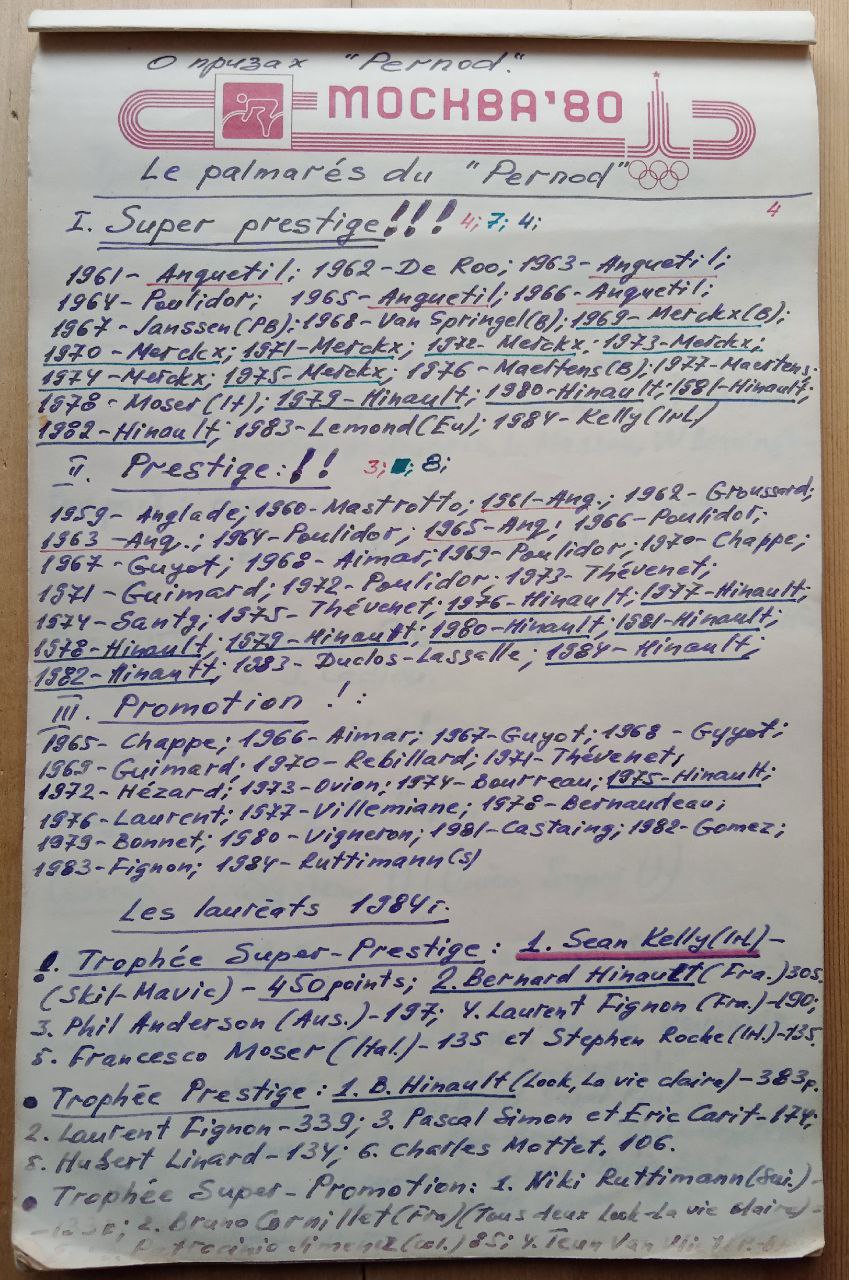 О призах "Pernod".
МОСКВА'80
Le palmarés du "Pernod"
4
I. Super prestige!!! 4; 7; 4;
1961- Anguetil; 1962-De Roo; 1963-Anguetil;
1964- Poulidor; 1965-Anguetil; 1966-Anguetil;
1967-Janssen(PB); 1968-Van Springel(B); 1969-Merckx(B);
1970-Merckx; 1971-Merckx; 1972-Merckx; 1973-Merckx;
1974-Merckx; 1975-Merckx; 1976-Maertens(B); 1977-Maertens;
1978-Moser(It); 1979-Hinault; 1980-Hinault; 1981-Hinault;
1982-Hinault; 1983-Lemond(Eu); 1984-Kelly(IrL)
II. Prestige:!! 3; 8;
1959- Anglade; 1960-Mastrotto; 1961-Anq.; 1962-Groussard;
1963-Anq.; 1964-Poulidor; 1965-Anq; 1966-Poulidor;
1967-Guyot; 1968-Aimar; 1969-Poulidor; 1970-Chappe;
1971-Guimard; 1972-Poulidor; 1973-Thévenet;
1974-Santy; 1975-Thévenet; 1976-Hinault; 1977-Hinault;
1978-Hinault; 1979-Hinautt; 1980-Hinault; 1981-Hinault;
1982-Hinautt; 1983-Duclos-Lassalle; 1984-Hinault;
III. Promotion !:
1965-Chappe; 1966-Aimar; 1967-Guyot; 1968-Gyyot;
1969-Guimard; 1970-Rebillard; 1971-Thévenet;
1972-Hézard; 1973-Ovion; 1974-Bourreau; 1975-Hinault;
1976-Laurent; 1977-Villemiane; 1978-Bernaudeau;
1979-Bonnet; 1980-Vigneron; 1981-Castaing; 1982-Gomez;
1983-Fignon; 1984-Ruttimann(s)
Les lauréats 1984г.
! Trophée Super-Prestige: 1. Sean Kelly(IrL)-
(Skil-Mavic) - 450 points; 2. Bernard Hinault(Fra.)305.
3. Phil Anderson (Aus.)-197; 4. Laurent Fignon (Fra.)-190;
5. Francesco Moser (Ital.)-135 et Stephen Roche(Irl.)-135.
• Trophée Prestige: 1. B. Hinault(Look, La vie claire)-383p.
2. Laurent Fignon-339; 3. Pascal Simon et Eric Carit-174;
5. Hubert Linard-134; 6. Charles Mottet, 106.
• Trophée Super-Promotion: 1. Niki Ruttimann(Sui.)-
-133p; 2. Bruno Cornillet(Fra)(Tous deux Look-La vie claire)-
Patrocinio Jimenez(Col.) 85; 4. Teun Van Vliet